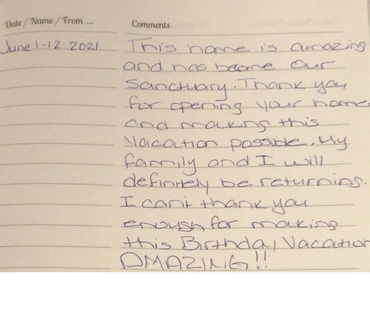 Date / Name / From ... Comments
June 1-12 2021 This home is amazing
and has became our
Sanctuary. Thank you
for opening your home
and making this
Vacation possible. My
family and I will
definitely be returning.
I can't thank you
enough for making
this Birthday Vacation
AMAZING!!